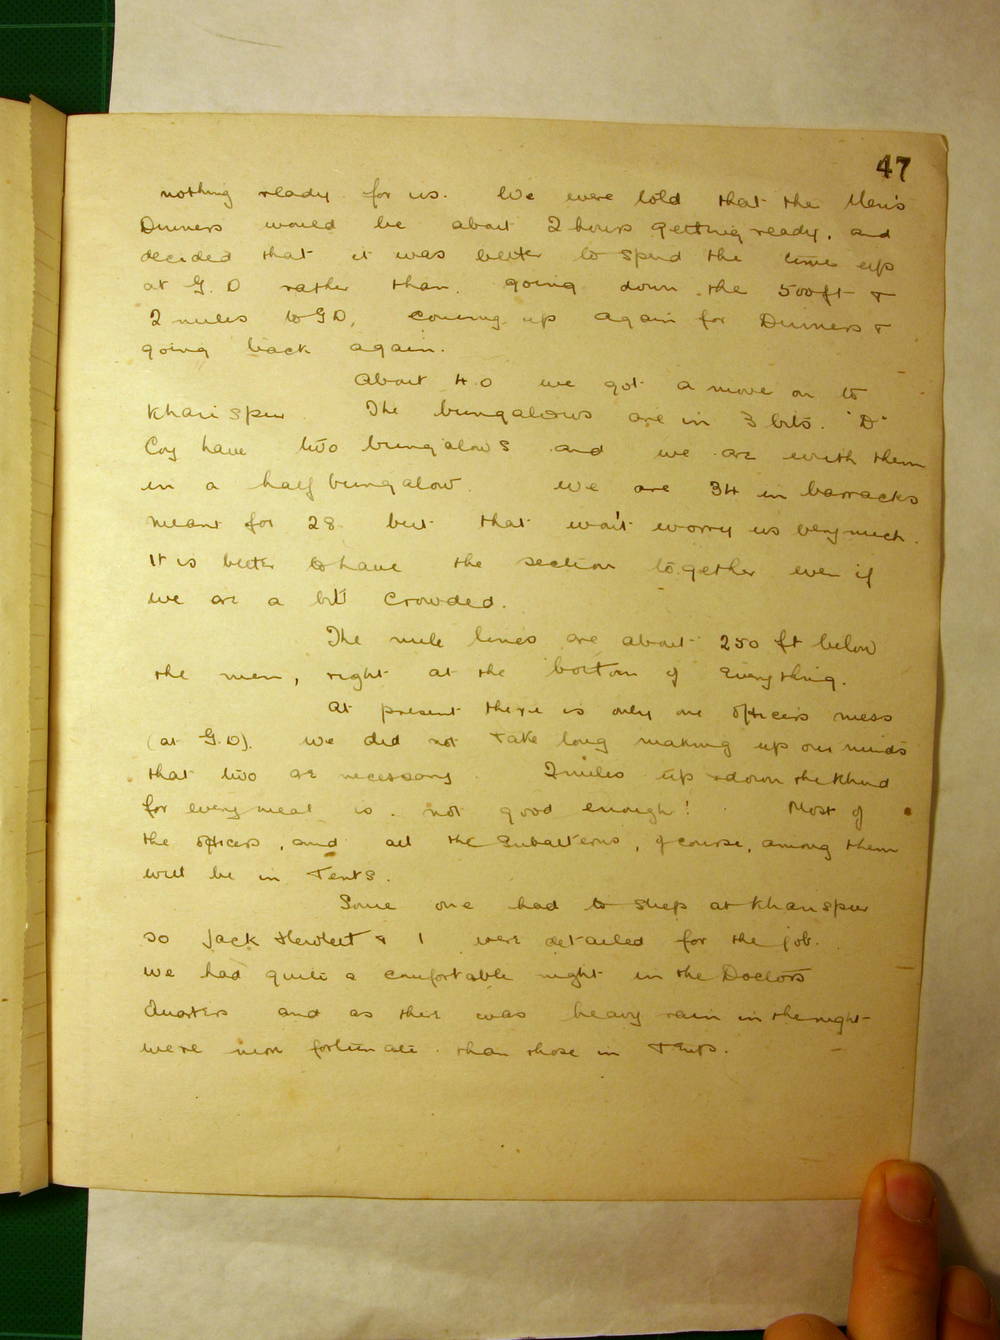 47
nothing ready for us. We were told that the Men's
Dinners would be about 2 hours getting ready, and
decided that it was better to spend the time up
at G. D rather than going down the 500ft &
2 miles to GD, coming up again for Dinners &
going back again.
About 4.0 we got a move on to
Khanspur. The bungalows are in 3 bits. "D"
Coy have two bungalows and we are with them
in a half bungalow. We are 34 in barracks
meant for 28 but that won't worry us very much.
It is better to have the section together even if
we are a bit crowded.
The mule lines are about 250 ft below
the men, right at the bottom of everything.
At present there is only one officers mess
(at G.D). We did not take long making up our minds
that two are necessary. 2 miles up & down the Khud
for every meal is not good enough! Most of
the officers, and all the Subalterns, of course, among them
will be in Tents.
Some one had to sleep at Khanspur
so Jack & I were detailed for the job.
We had quite a comfortable night in the Doctors
Quarters and as there was heavy rain in the night
were more fortunate than those in Tents.